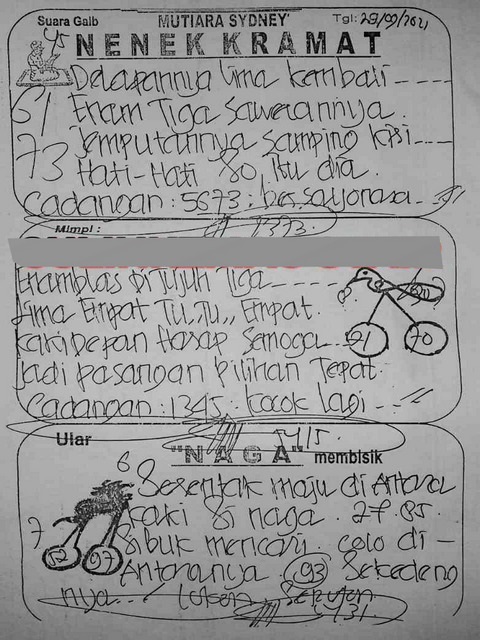 Suara Gaib MUTIARA SYDNEY' Tgl: 29/09/2021
45
NENEK KRAMAT
Delapannya lima kembali
61 Enam Tiga sawerannya.
Jemputannya samping kisi
73 Hati-Hati 80 Itu dia.
Cadangan: 5673:
1373.
Mimpi:
Enamblas di Tujuh Tiga
lima Empat Tu,Tu,, Empat.
8 60
kaki depan Harap Semoga
51 70
jadi pasangan pilihan Tepat.
Cadangan: 1345. cocok lagi
415.
Ular "NAGA" membisik
6
Serentak maju di Antara
7 kaki si naga. 27.85.
sibuk mencari colo di-
52 97
Antaranya (93) Sekedeng
nya.
431.